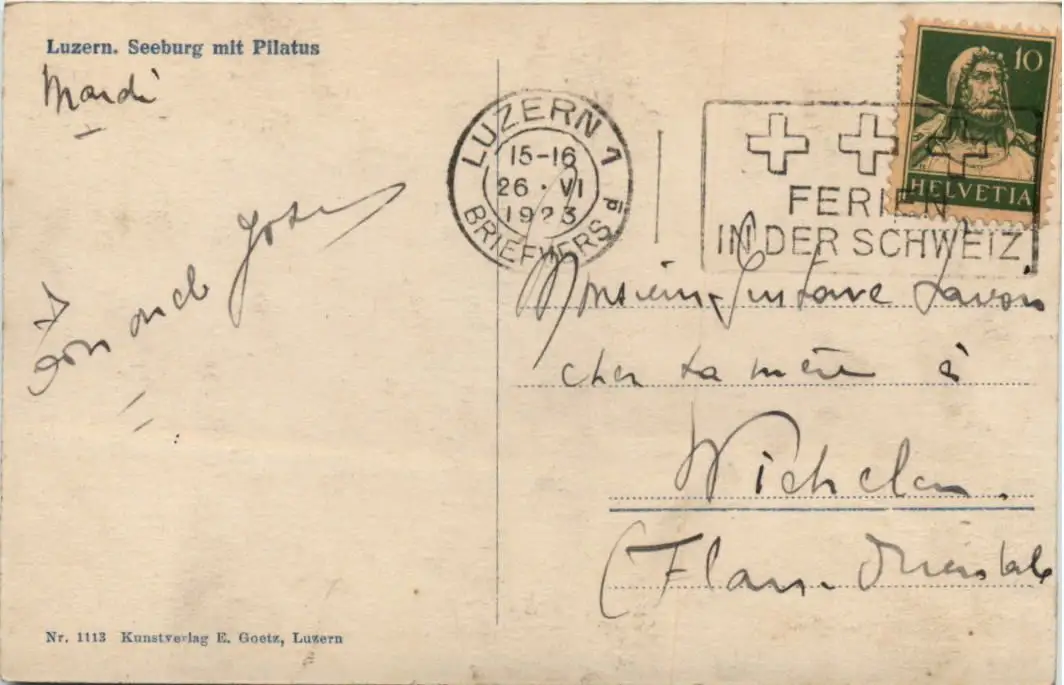 Luzern. Seeburg mit Pilatus
Mardi
Ton oncle
LUZERN 1
15-16
26 · VI
1923
BRIEFVERS
FERIEN
IN DER SCHWEIZ
10
HELVETIA
Monsieur Gustave
chez sa mère à
Wichelen.
(Flan. Orientale
Nr. 1113 Kunstverlag E. Goetz, Luzern